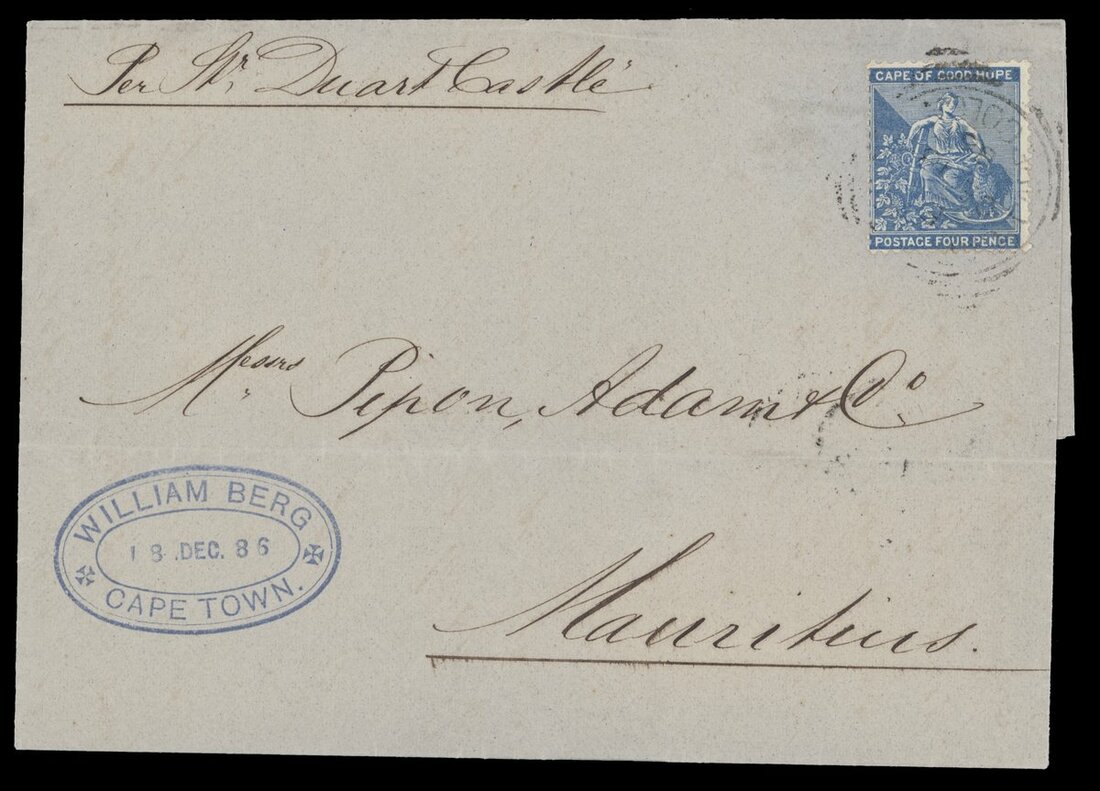 Per Str. Duart Castle
CAPE OF GOOD HOPE
POSTAGE FOUR PENCE
Messrs Pipon, Adam & Co
WILLIAM BERG
18.DEC.86
CAPE TOWN.
Mauritius.